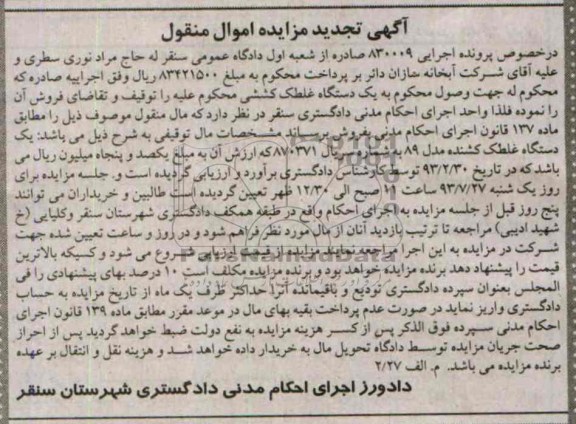 آگهی تجدید مزایده اموال منقول
درخصوص پرونده اجرایی ۸۳۰۰۰۹ صادره از شعبه اول دادگاه عمومی سنقر له حاج مراد نوری سطری و
علیه آقای شرکت آبخانه سازان دائر بر پرداخت محکوم به مبلغ ۸۳۴۲۱۵۰۰ ریال وفق اجراییه صادره که
محکوم له جهت وصول محکوم به یک دستگاه غلطک کششی محکوم علیه را توقیف و تقاضای فروش آن
را نموده فلذا واحد اجرای احکام مدنی دادگستری سنقر در نظر دارد که مال منقول موصوف ذیل را مطابق
ماده ۱۳۷ قانون اجرای احکام مدنی بفروش برساند مشخصات مال توقیفی به شرح ذیل می باشد: یک
دستگاه غلطک کشنده مدل ۸۹ سریال ۸۷۰۳۷۱ که ارزش آن به مبلغ یکصد و پنجاه میلیون ریال می
باشد که در تاریخ ۹۳/۲/۳۰ توسط کارشناس دادگستری برآورد و ارزیابی گردیده است و. جلسه مزایده برای
روز یک شنبه ۹۳/۷/۲۷ ساعت ۱۱ صبح الی ۱۲/۳۰ ظهر تعیین گردیده است طالبین و خریداران می توانند
پنج روز قبل از جلسه مزایده به اجرای احکام واقع در طبقه همکف دادگستری شهرستان سنقر وکلیایی (خ
شهید ادیبی) مراجعه تا ترتیب بازدید آنان از مال مورد نظر فراهم شود و در روز و ساعت تعیین شده جهت
شرکت در مزایده به این اجرا مراجعه نمایند مزایده از قیمت ارزیابی شروع می شود و کسیکه بالاترین
قیمت را پیشنهاد دهد برنده مزایده خواهد بود و برنده مزایده مکلف است ۱۰ درصد بهای پیشنهادی را فی
المجلس بعنوان سپرده دادگستری تودیع و باقیمانده آنرا حداکثر ظرف یک ماه از تاریخ مزایده به حساب
دادگستری واریز نماید در صورت عدم پرداخت بقیه بهای مال در موعد مقرر مطابق ماده ۱۳۹ قانون اجرای
احکام مدنی سپرده فوق الذکر پس از کسر هزینه مزایده به نفع دولت ضبط خواهد گردید پس از احراز
صحت جریان مزایده توسط دادگاه تحویل مال به خریدار داده خواهد شد و هزینه نقل و انتقال بر عهده
برنده مزایده می باشد. م. الف ۲/۲۷
دادورز اجرای احکام مدنی دادگستری شهرستان سنقر